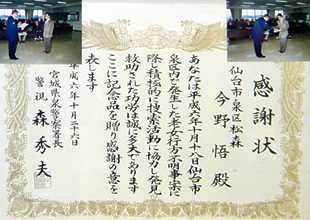 感謝状
仙台市泉区松森
今野悟殿
あなたは平成六年十月十八日仙台市
泉区内で発生した老女行方不明事案に
際し積極的に捜索活動に協力し発見
救助された功労は誠に多大であります
ここに記念品を贈り感謝の意を
表します
平成六年十月二十六日
宮城県泉警察署長
警視 森秀夫